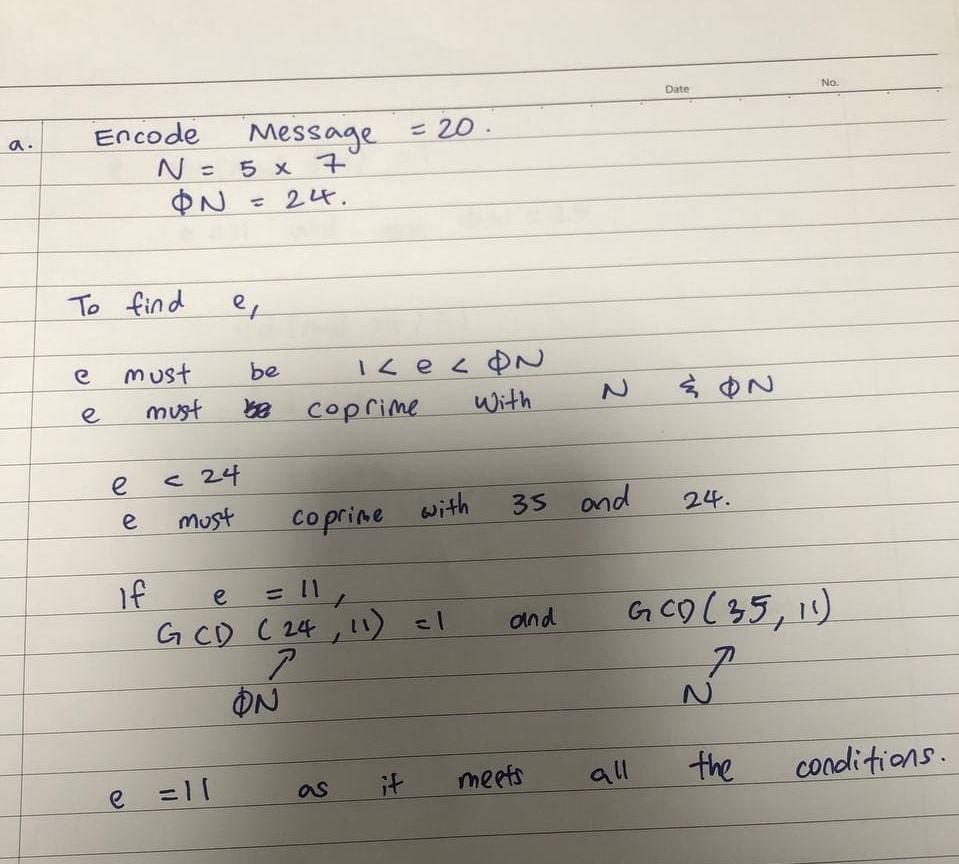 Date No.
a. Encode Message = 20.
N = 5 x 7
ΦN = 24.
To find e,
e must be 1 < e < ΦN
e must coprime with N & ΦN
e < 24
e must coprime with 35 and 24.
If e = 11,
GCD (24, 11) = 1 and GCD (35, 11)
ΦN N
e = 11 as it meets all the conditions.